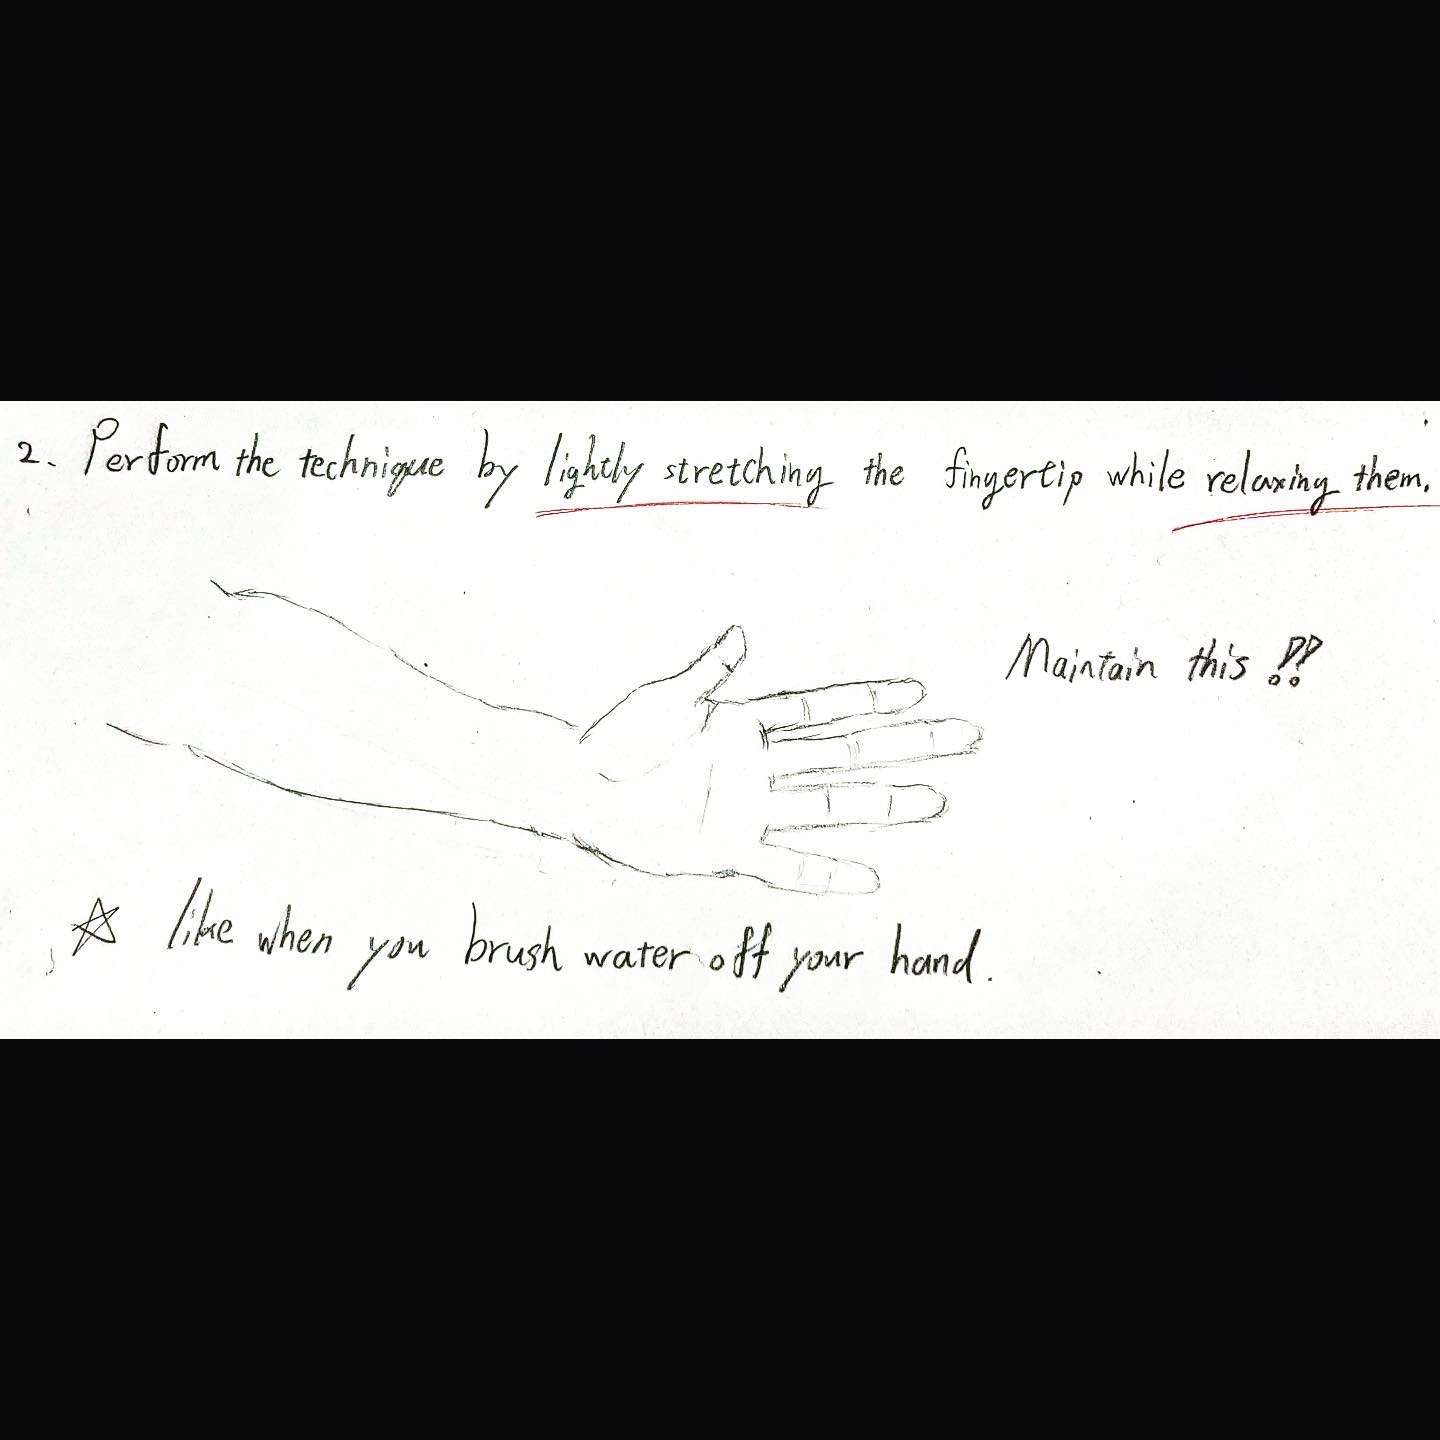 2. Perform the technique by lightly stretching the fingertip while relaxing them.
Maintain this !!
☆ like when you brush water off your hand.